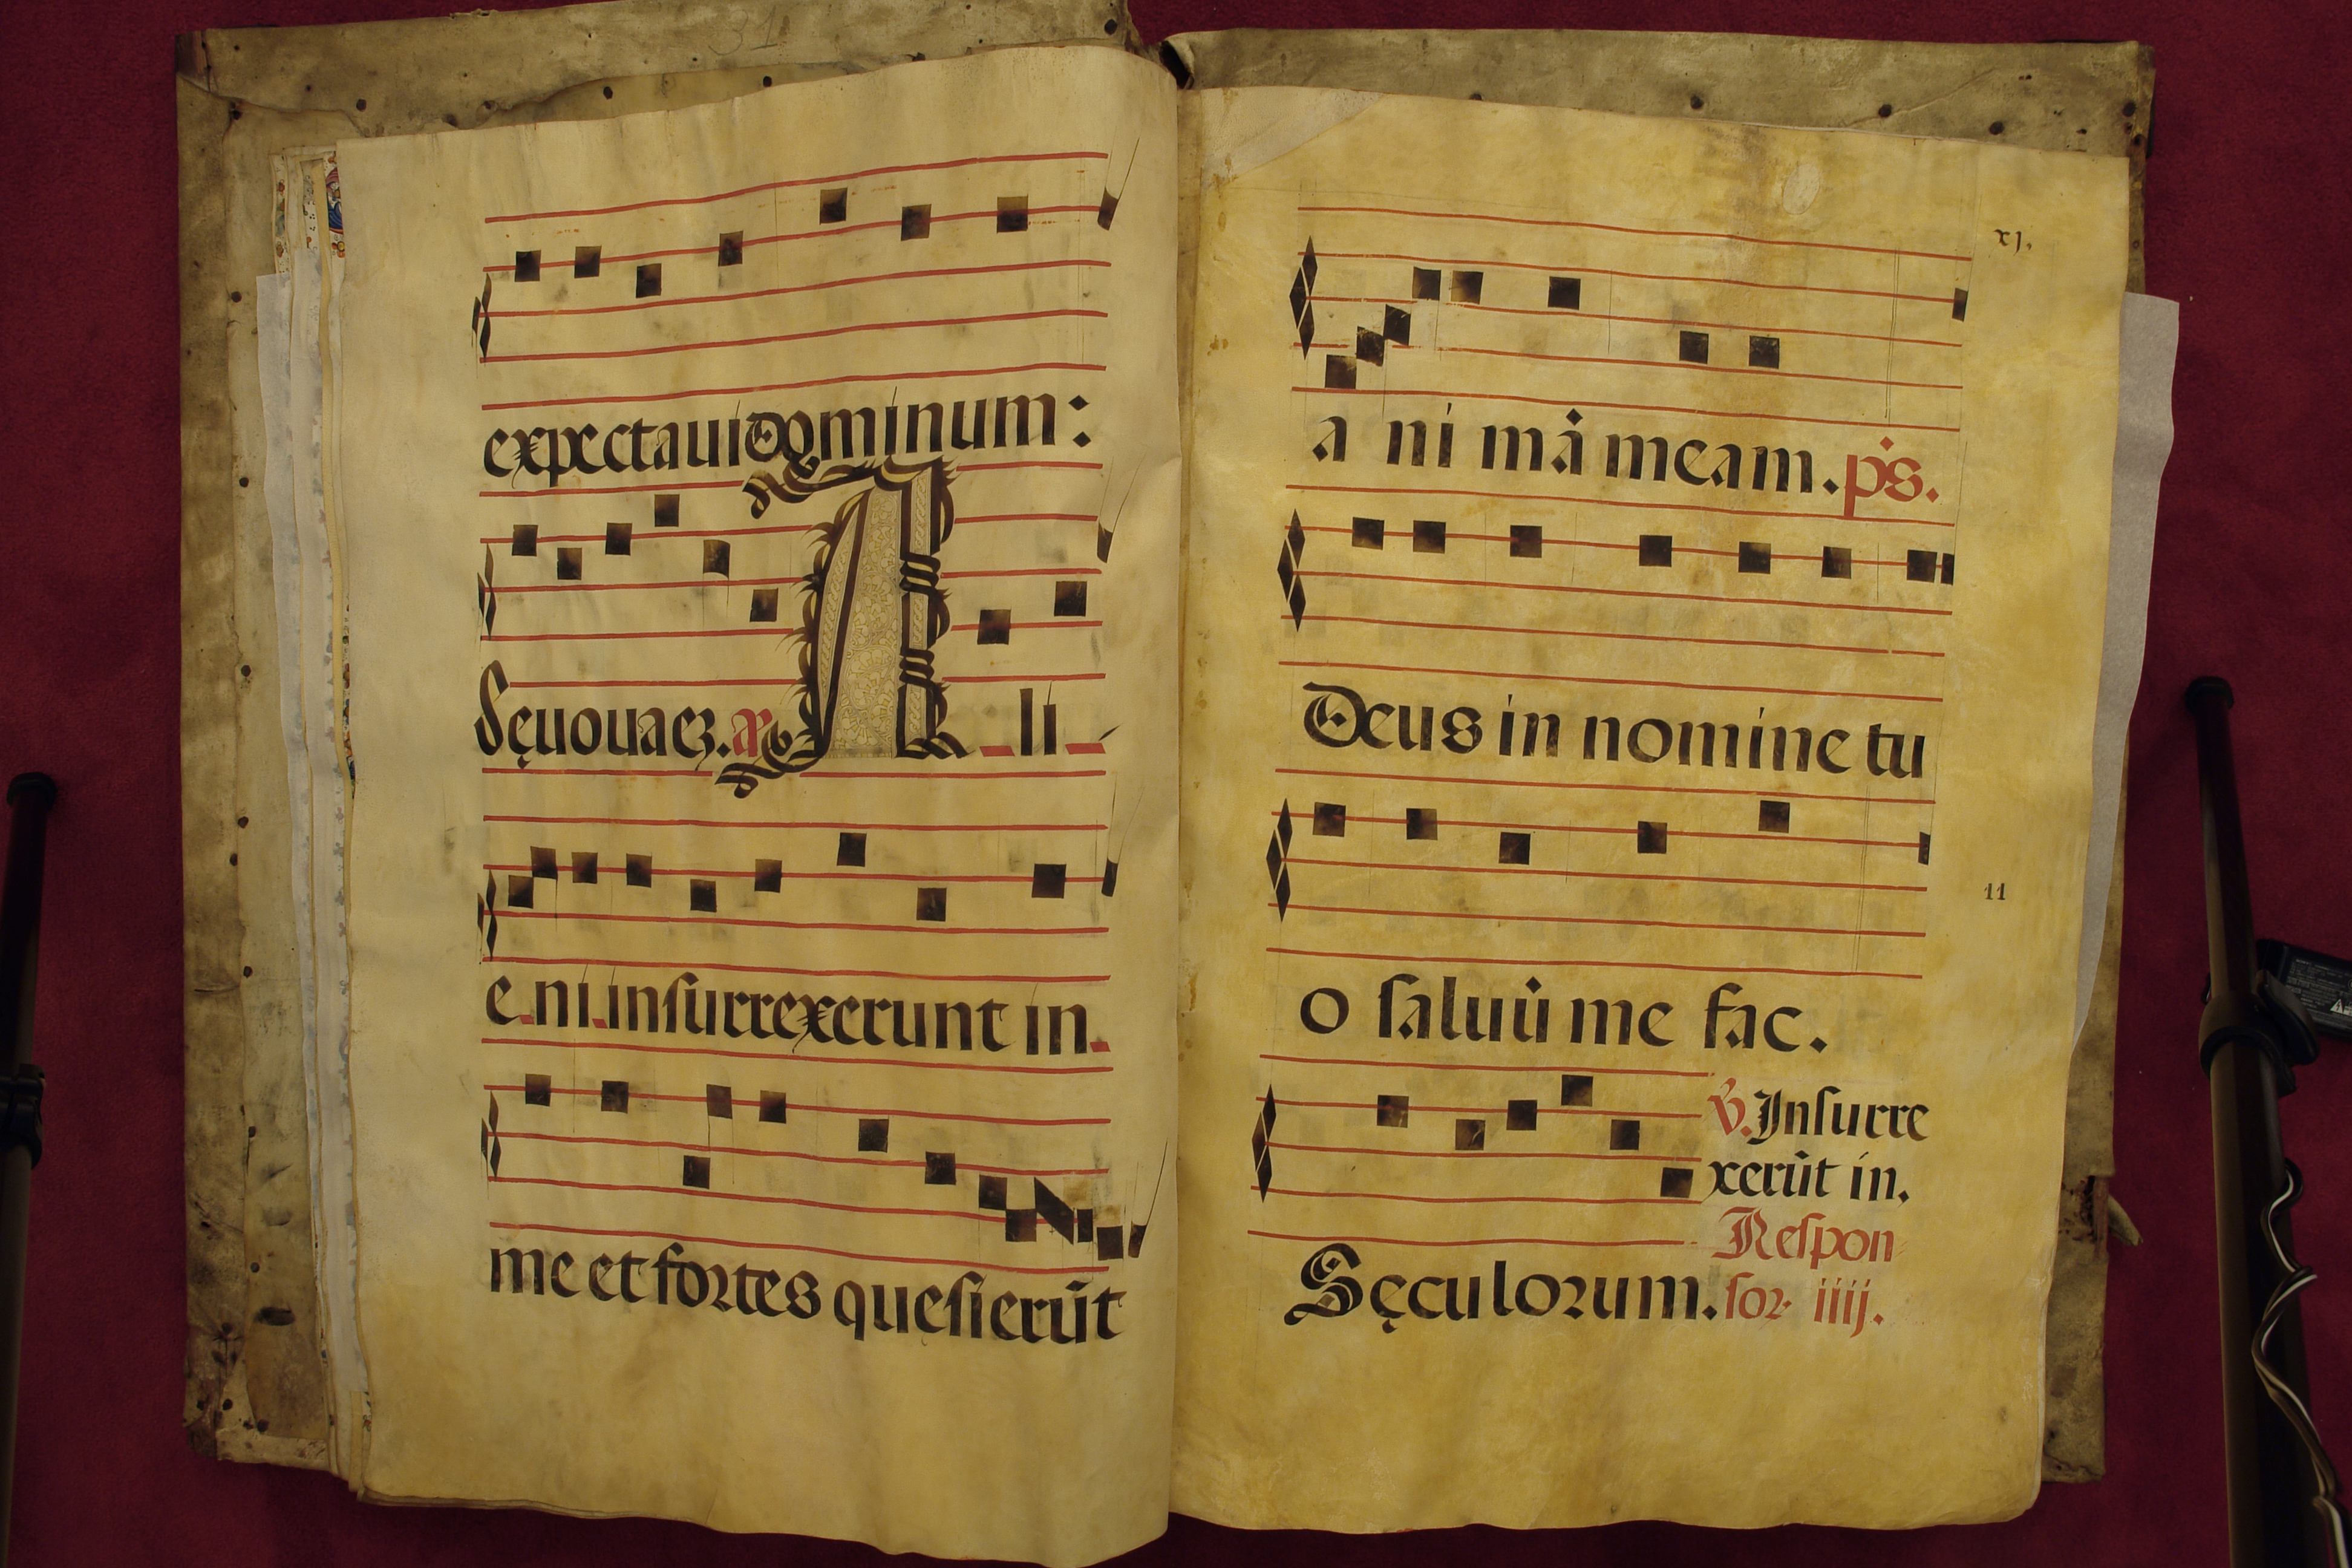 31
expectaui dominum:
Sęuouaeȝ. añ Ali
eni insurrexerunt in
me et fortes quesierūt
xj.
a ni mā meam. ps.
Deus in nomine tu
11
o saluū me fac.
℣. Insurre
xerūt in.
Respon
Sęculorum. sor iiij.